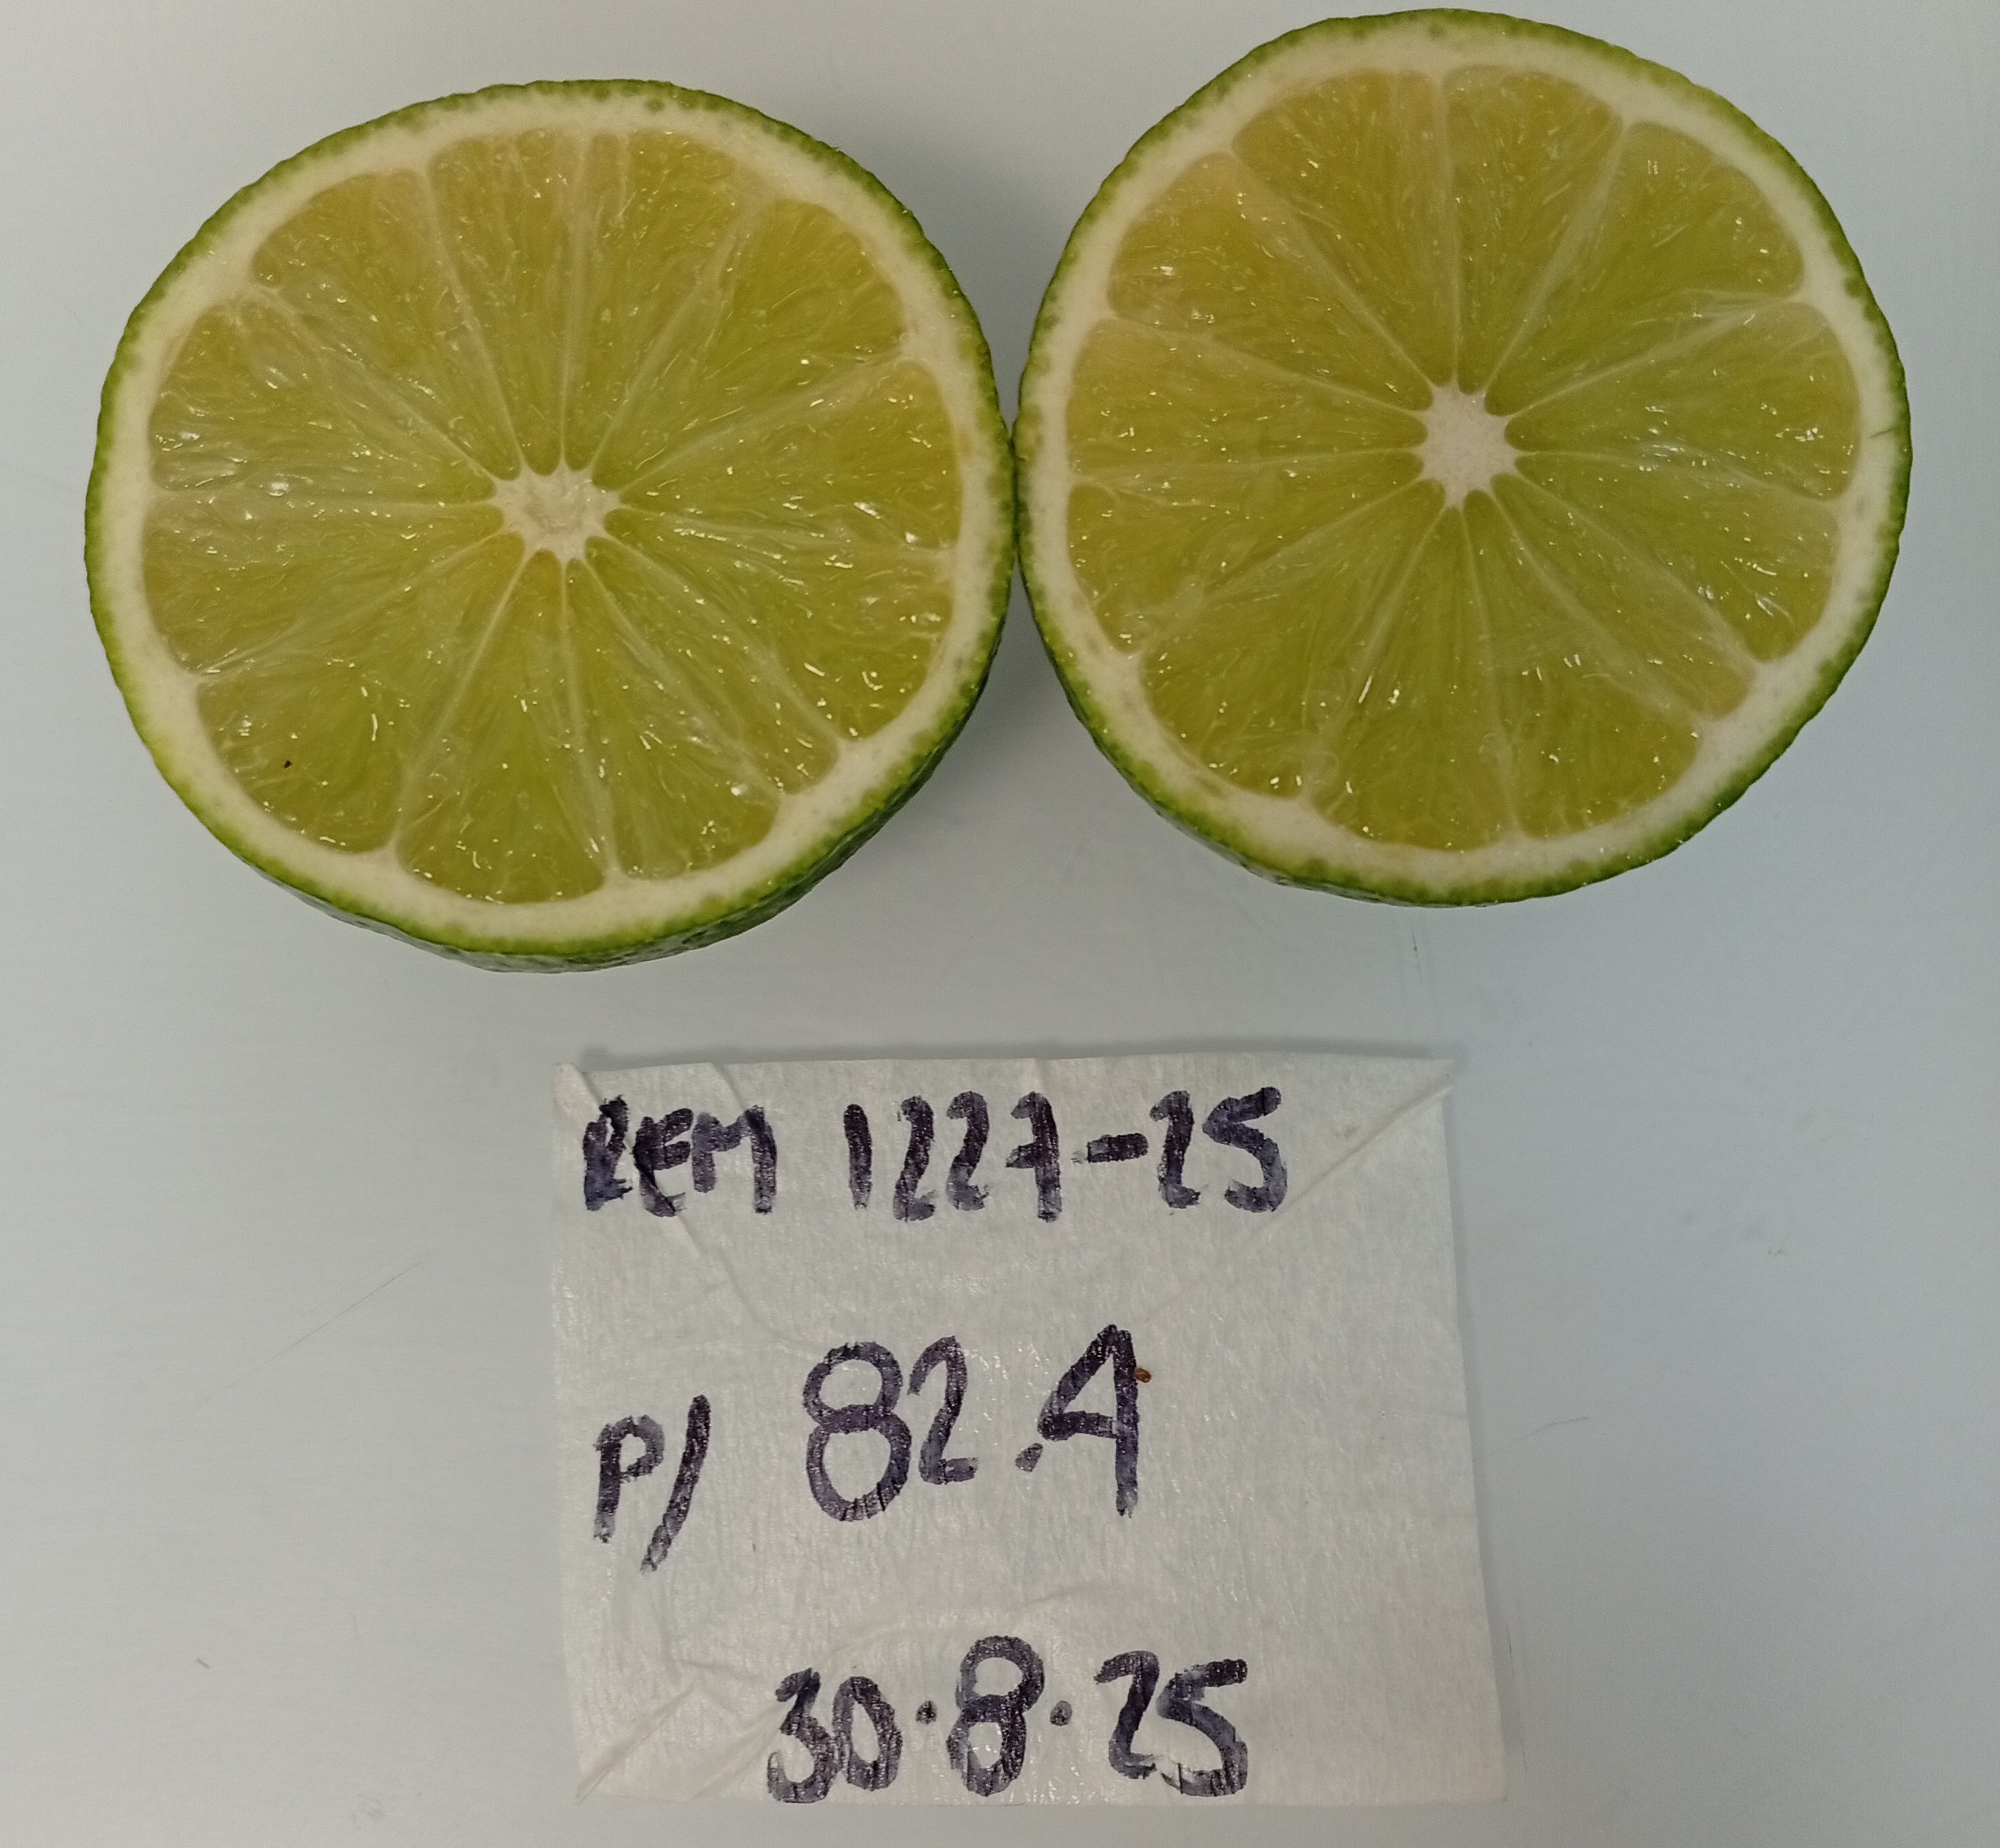 REM 1227-25
P/ 82.4
30.8.25